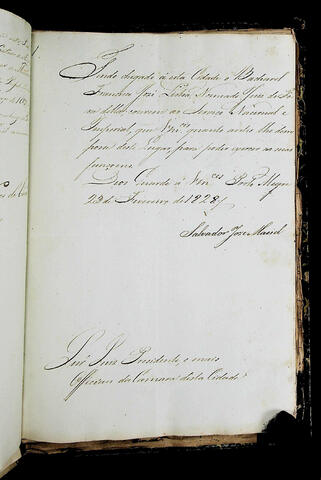 Tendo chegado á esta Cidade o Bacharel
Francisco José Lisboa, Nomado Juiz de Fó
ra della, convem ao Serviço Nacional e
Imperial, que Vm.ces quanto antes lhe dem
posse deste Lugar, para poder exercer as suas
funçoens.
Deos Guarde á Vm.ces Porto Alegre
23 de Fevereiro de 1828
Salvador Joze Maciel
Snr. Juiz Presidente, e mais
Officiaes da Camara desta Cidade